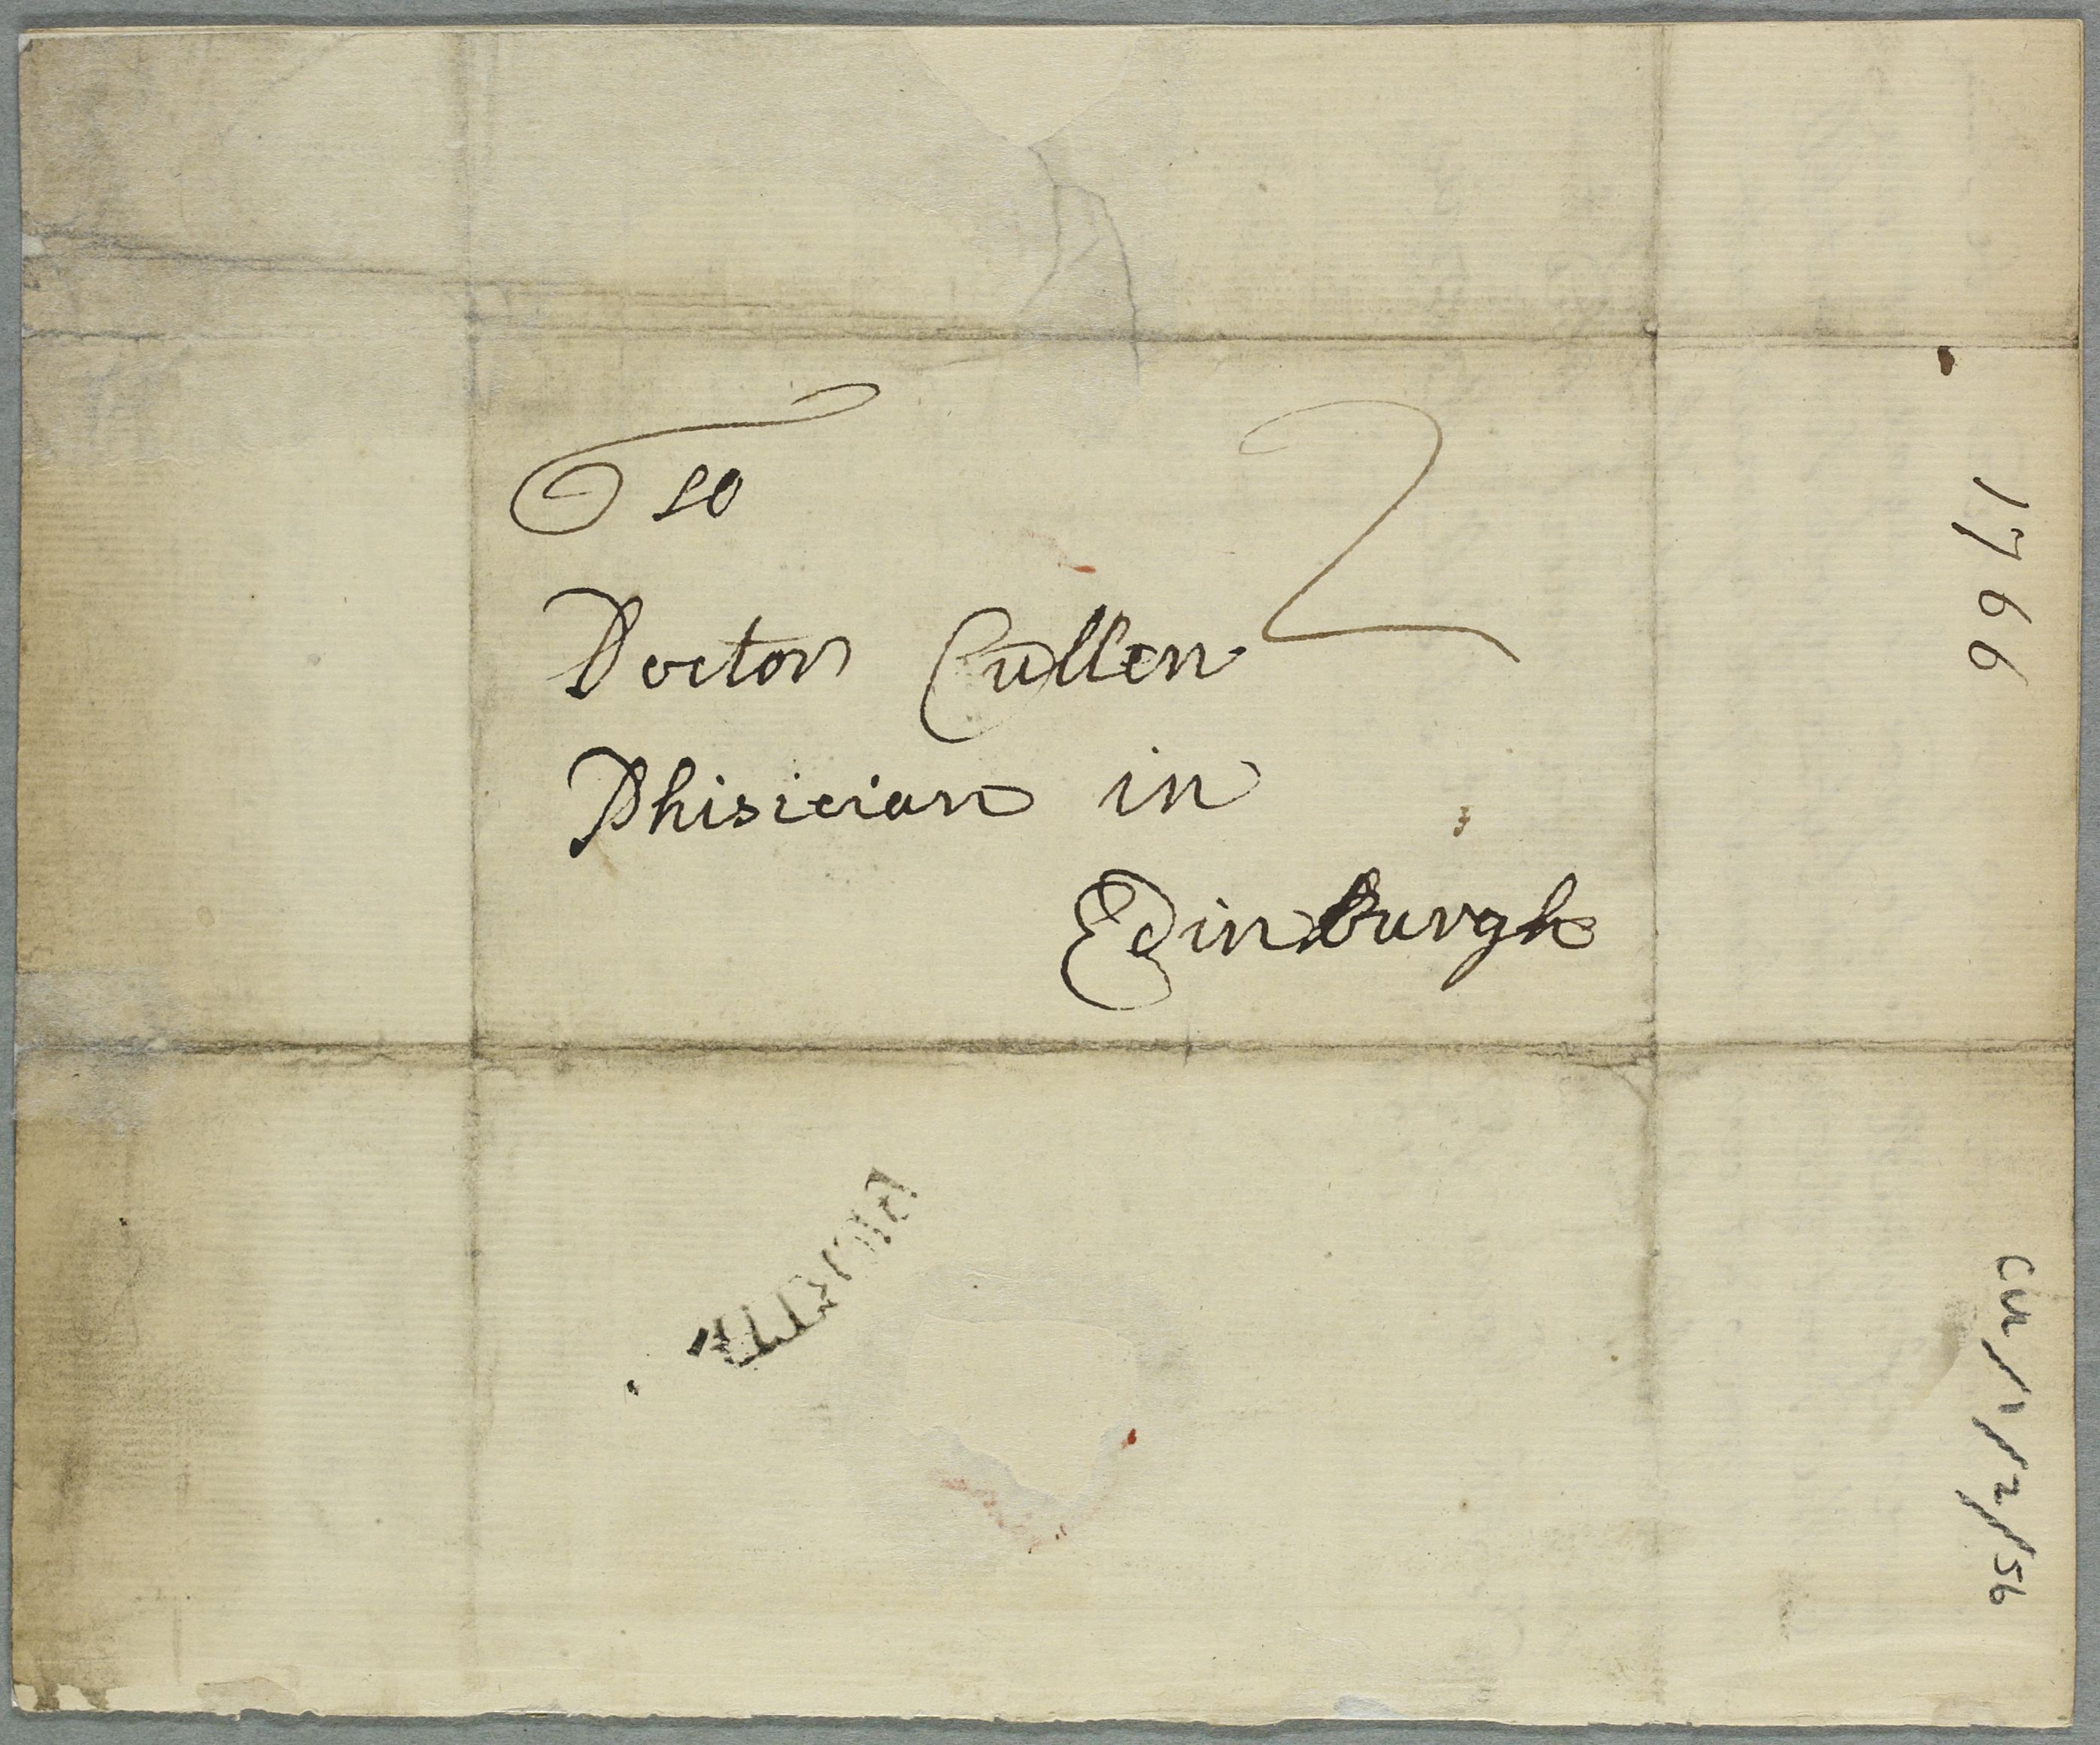 To
2
Doctor Cullen
Phisician in
Edinburgh
1766
CUL/1/2/56